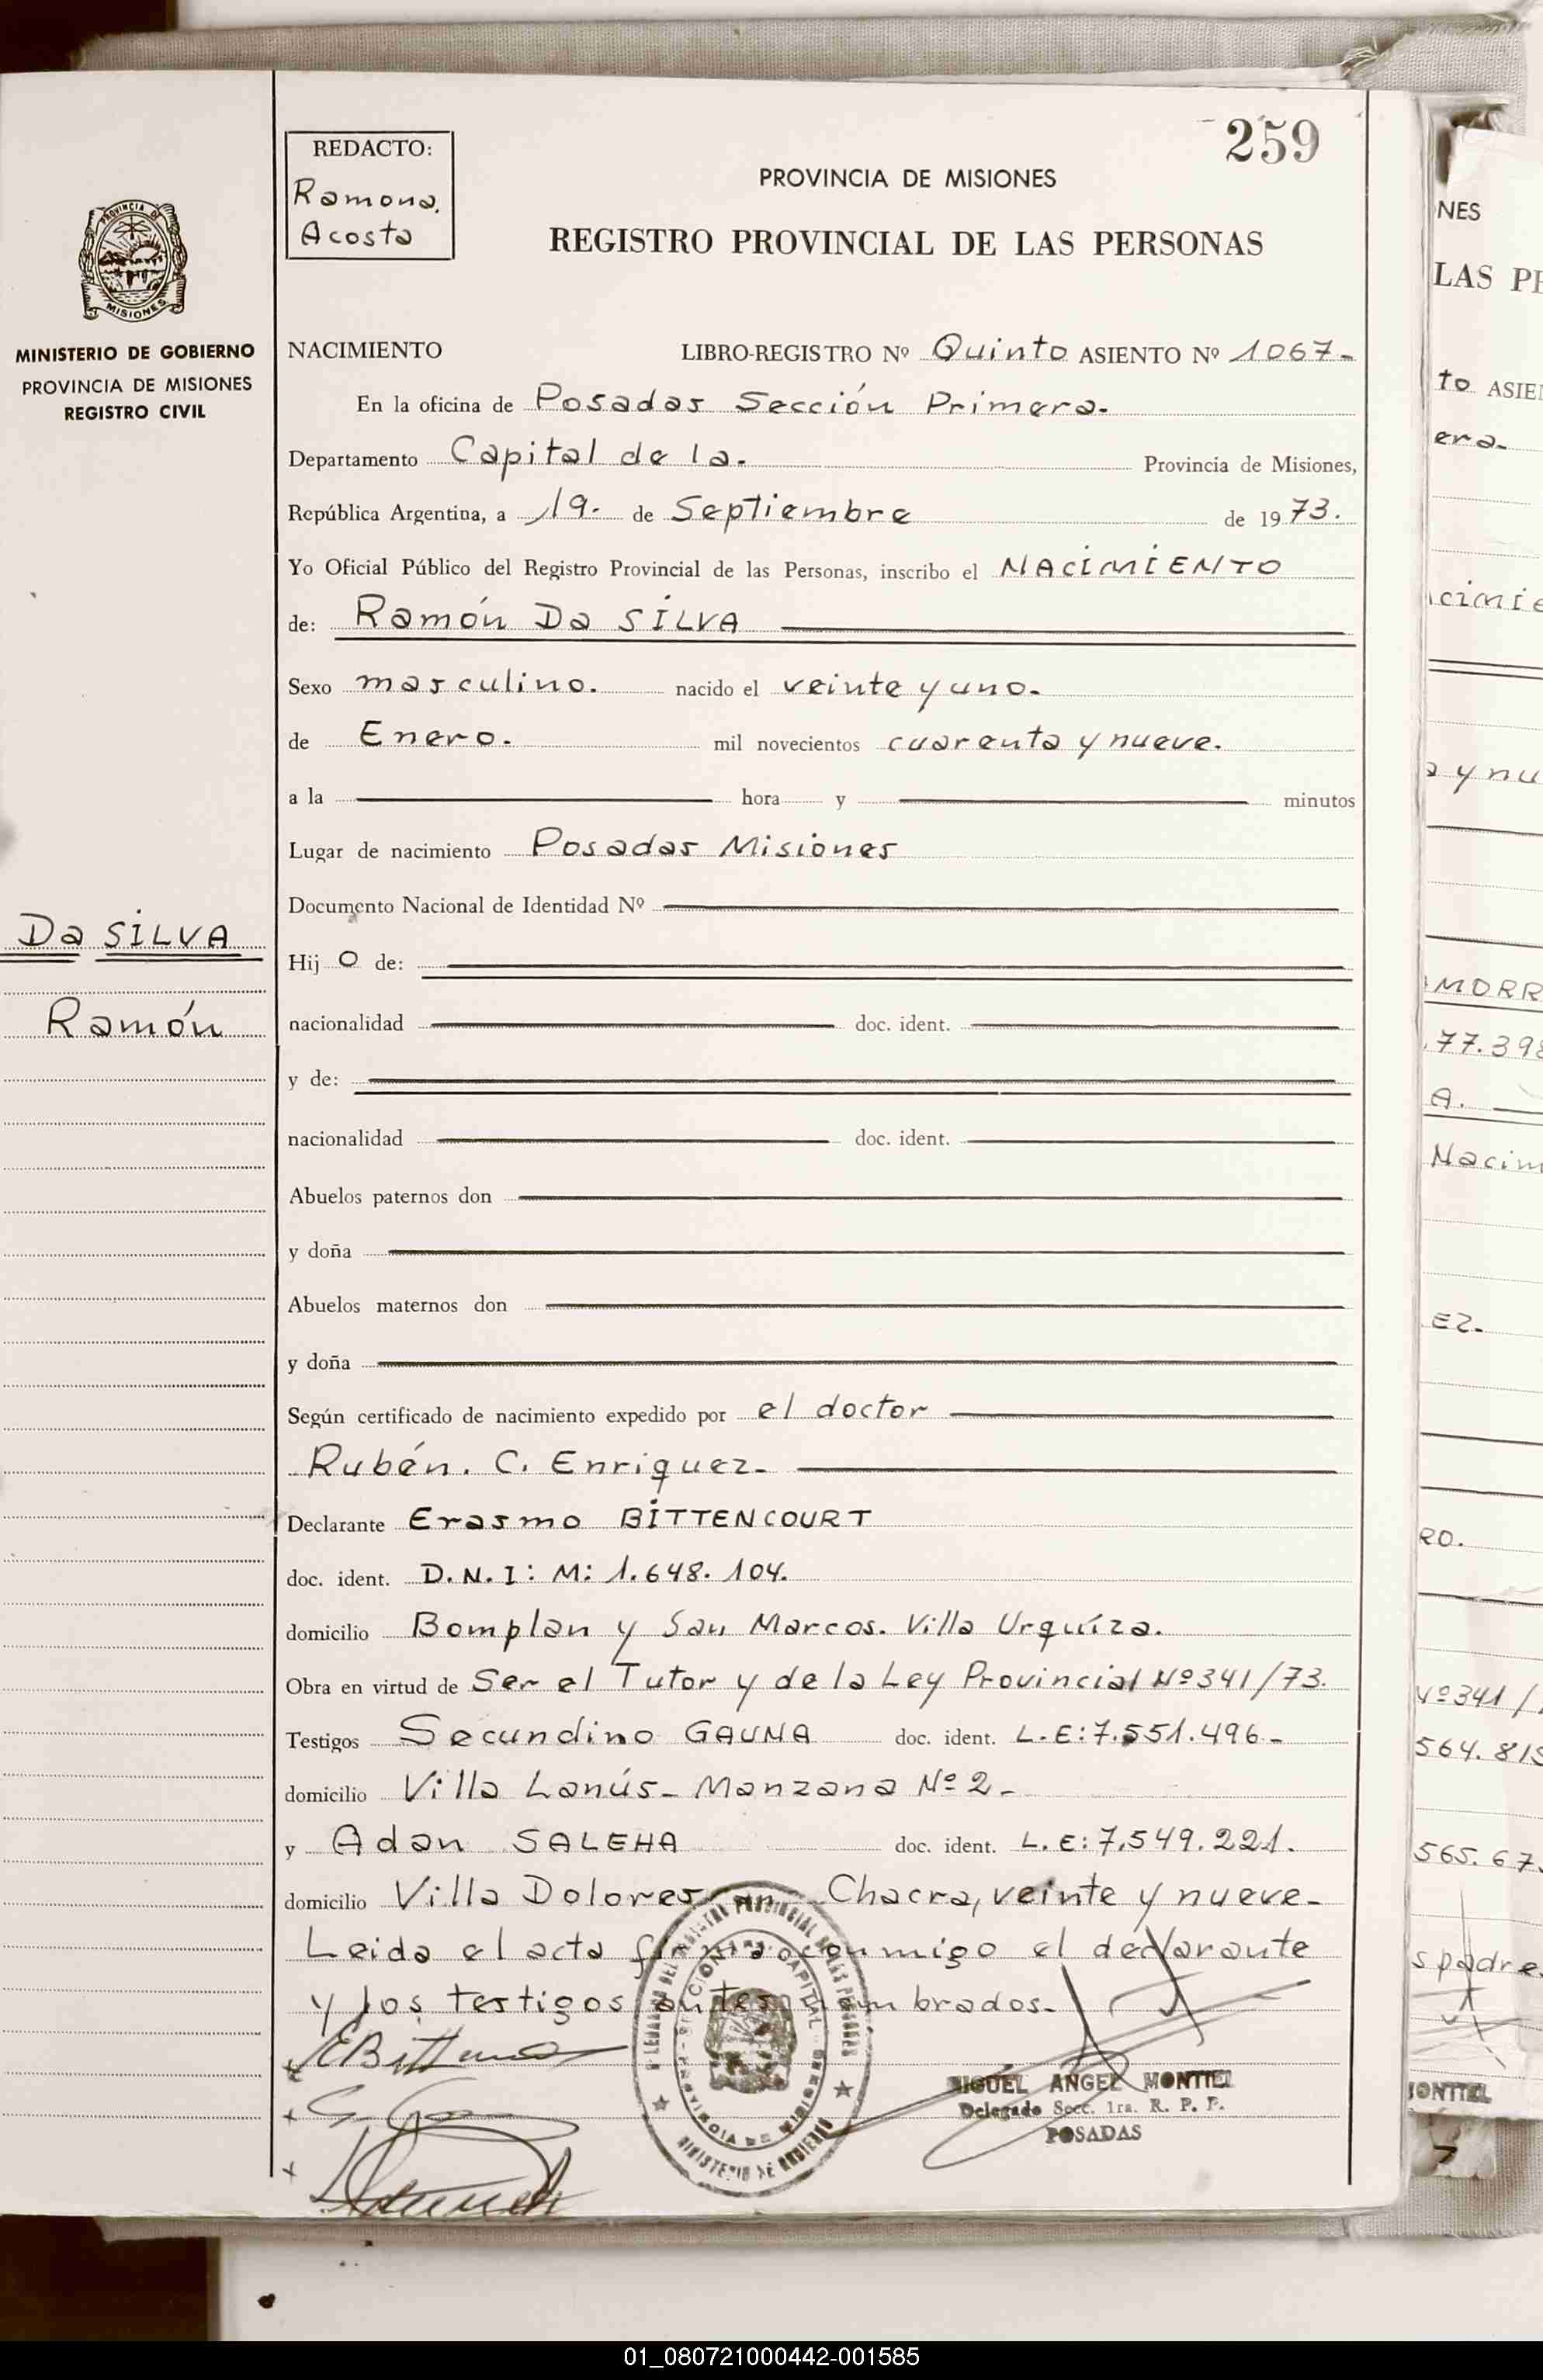 259
REDACTO:
Ramona.
Acosta
PROVINCIA DE MISIONES
REGISTRO PROVINCIAL DE LAS PERSONAS
PROVINCIA DE
MISIONES
MINISTERIO DE GOBIERNO
PROVINCIA DE MISIONES
REGISTRO CIVIL
NACIMIENTO LIBRO-REGISTRO Nº Quinto ASIENTO Nº 1067-
En la oficina de Posadas Sección Primera.
Departamento Capital de la. Provincia de Misiones,
República Argentina, a 19. de Septiembre de 1973.
Yo Oficial Público del Registro Provincial de las Personas, inscribo el NACIMIENTO
de: Ramón Da SILVA
Sexo masculino. nacido el veinte y uno.
de Enero. mil novecientos cuarenta y nueve.
a la hora y minutos
Lugar de nacimiento Posadas Misiones
Documento Nacional de Identidad Nº
Da SILVA
Ramón
Hij o de:
nacionalidad doc. ident.
y de:
nacionalidad doc. ident.
Abuelos paternos don
y doña
Abuelos maternos don
y doña
Según certificado de nacimiento expedido por el doctor
Rubén. C. Enriquez-
Declarante Erasmo BITTENCOURT
doc. ident. D.N.I: M: 1.648.104.
domicilio Bomplan y San Marcos. Villa Urquíza.
Obra en virtud de Ser el Tutor y de la Ley Provincial Nº 341/73.
Testigos Secundino GAUNA doc. ident. L.E: 7.551.496-
domicilio Villa Lanús- Manzana Nº 2-
y Adan SALEHA doc. ident. L.E: 7.549.221.
domicilio Villa Dolores Chacra, veinte y nueve-
Leida el acta conmigo el declarante
y los testigos antes nombrados-
MIGUEL ANGEL MONTIEL
Delegado Secc. 1ra. R. P. P.
POSADAS
MINISTERIO DE GOBIERNO
NES
LAS PE
to ASIE
era-
cimie
a y nu
MORR
77.398
A.
Nacim
EZ-
RO.
Nº 341/
564.815
565.67
s padre
MONTIEL
01_080721000442-001585